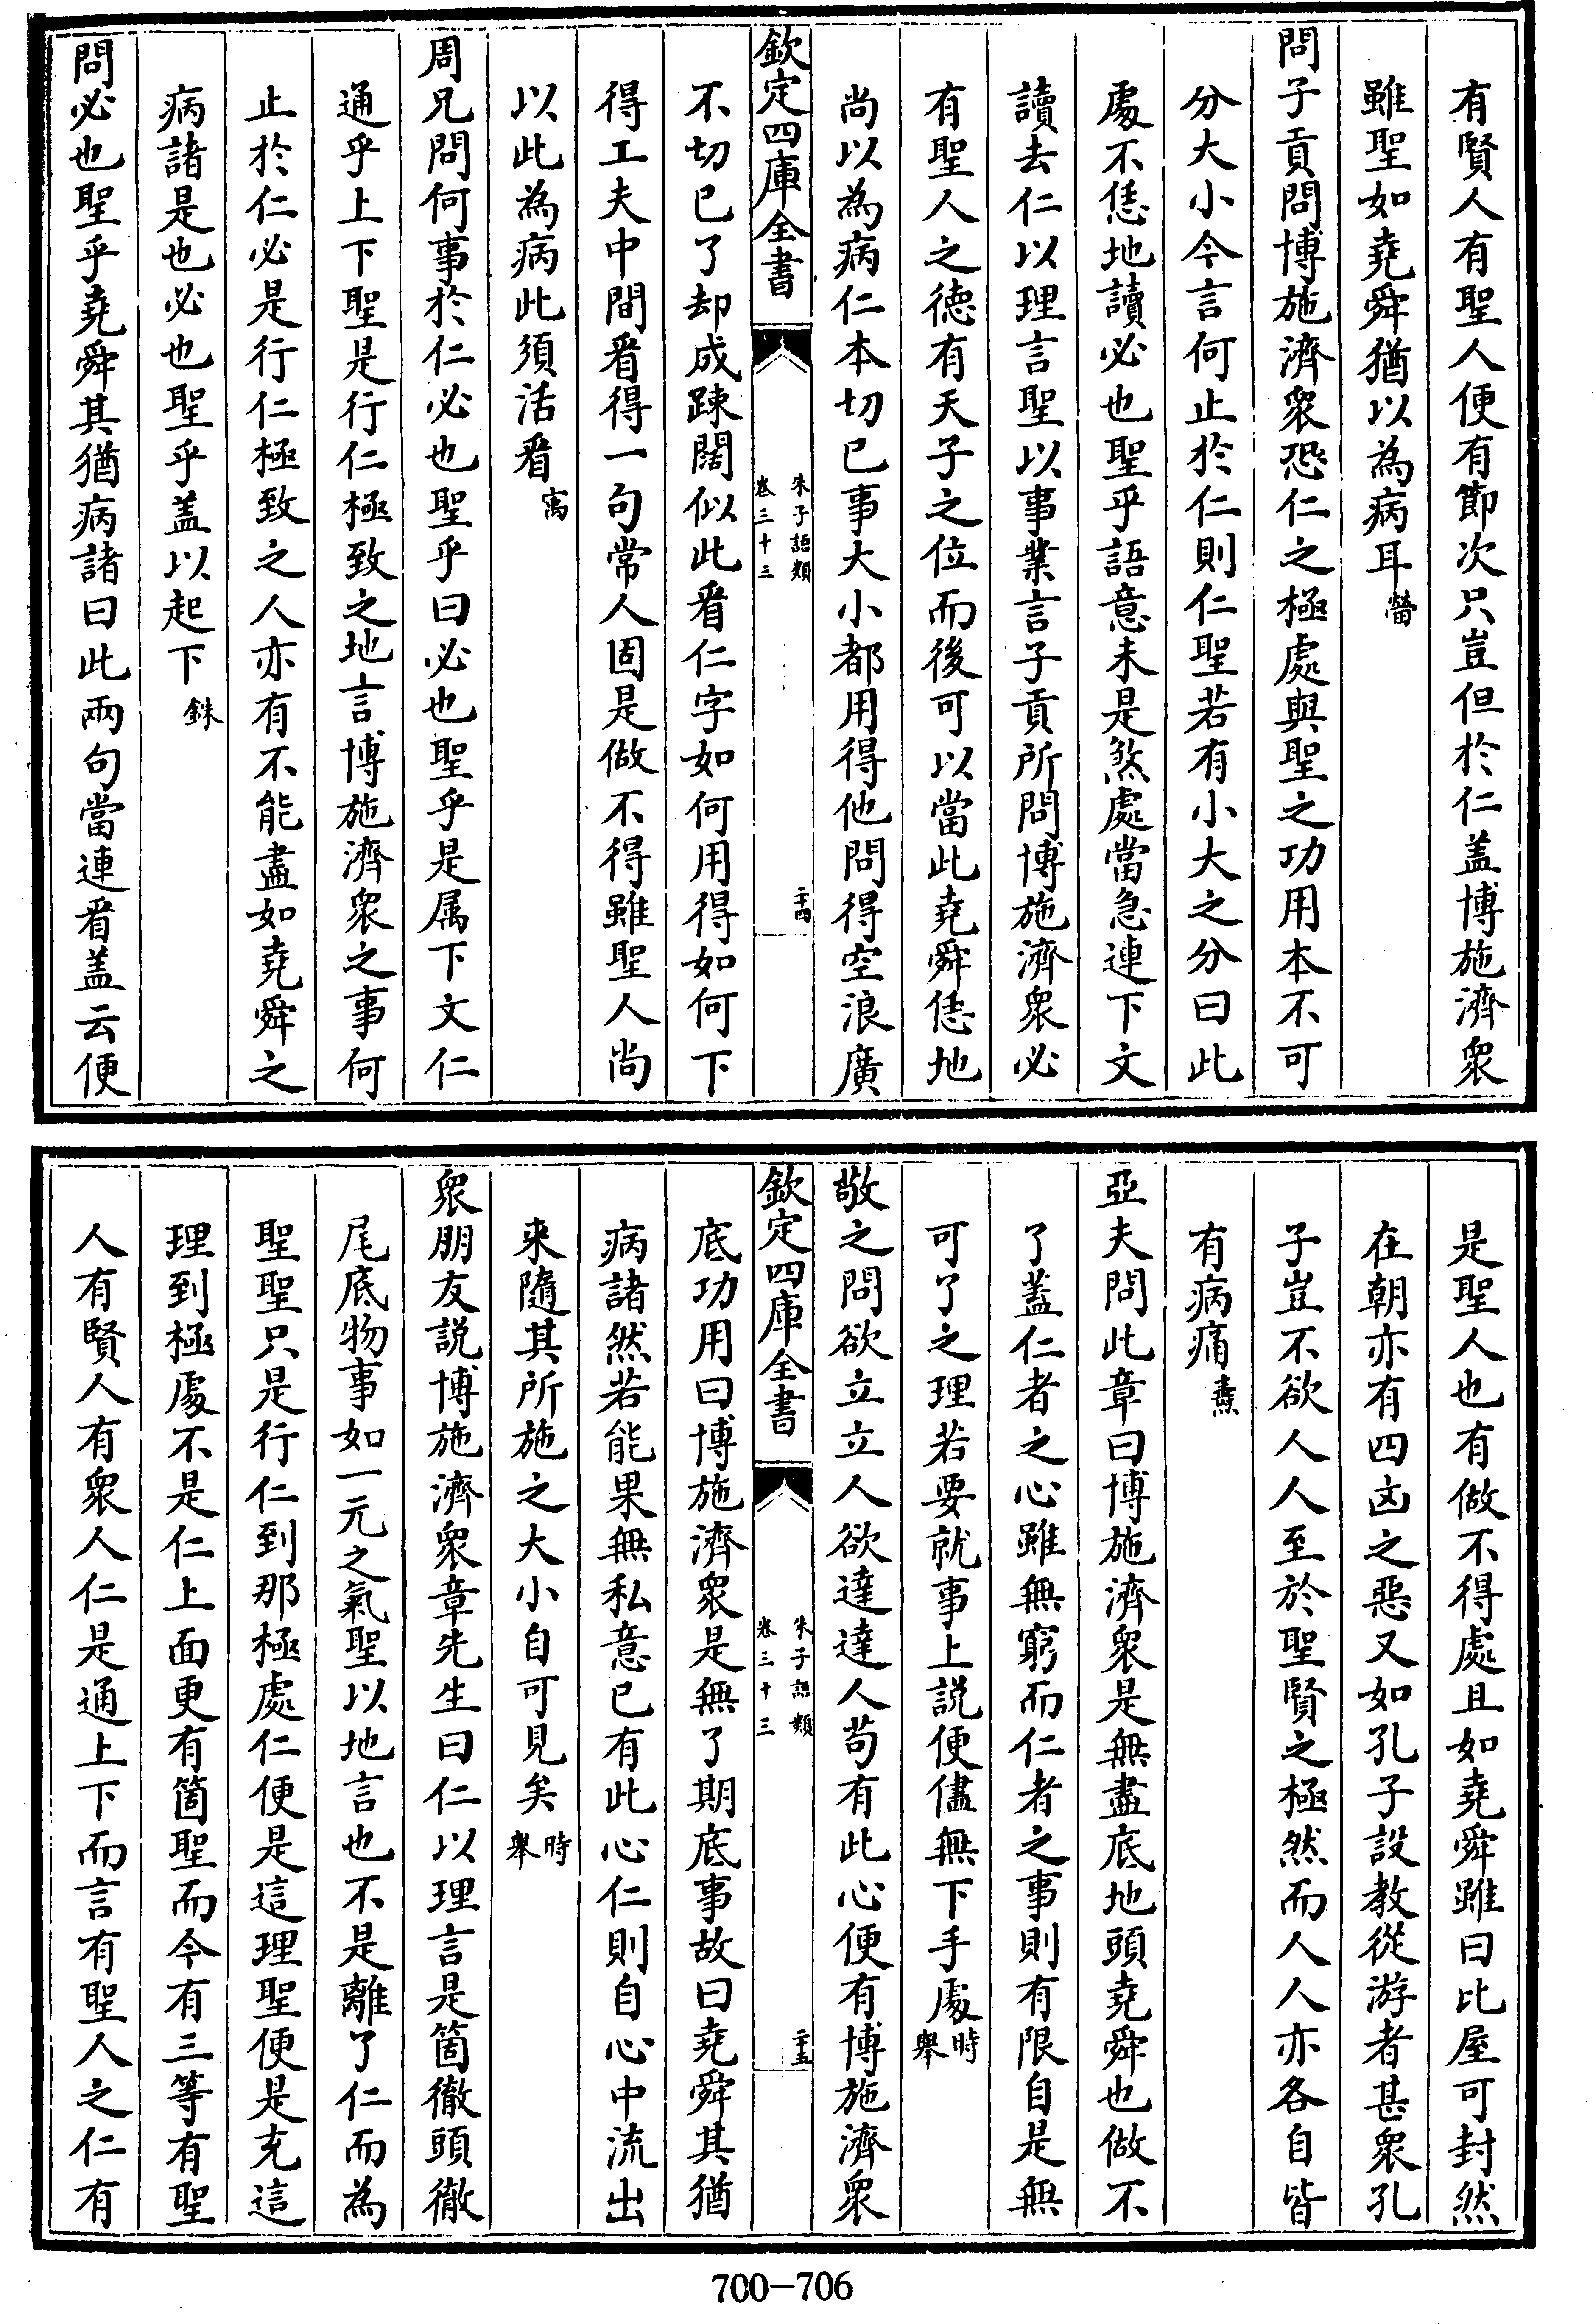 有賢人有聖人便有節次只豈但於仁盖博施濟衆
雖聖如堯舜猶以為病耳㽦
問子貢問博施濟衆恐仁之極處與聖之功用本不可
分大小今言何止於仁則仁聖若有小大之分曰此
處不恁地讀必也聖乎語意未是煞處當急連下文
讀去仁以理言聖以事業言子貢所問博施濟衆必
有聖人之德有天子之位而後可以當此堯舜恁地
尚以為病仁本切已事大小都用得他問得空浪廣
欽定四庫全書
朱子語類
卷三十三
二十四
不切已了却成踈闊似此看仁字如何用得如何下
得工夫中間看得一句常人固是做不得雖聖人尚
以此為病此須活看㝢
周兄問何事於仁必也聖乎曰必也聖乎是属下文仁
通乎上下聖是行仁極致之地言博施濟衆之事何
止於仁必是行仁極致之人亦有不能盡如堯舜之
病諸是也必也聖乎盖以起下銖
問必也聖乎堯舜其猶病諸曰此兩句當連看盖云便
是聖人也有做不得處且如堯舜雖曰比屋可封然
在朝亦有四凶之惡又如孔子設教從游者甚衆孔
子豈不欲人人至於聖賢之極然而人人亦各自皆
有病痛燾
亞夫問此章曰博施濟衆是無盡底地頭堯舜也做不
了蓋仁者之心雖無窮而仁者之事則有限自是無
可了之理若要就事上説便儘無下手處時舉
敬之問欲立立人欲達達人苟有此心便有博施濟衆
欽定四庫全書
朱子語類
卷三十三
二十五
底功用曰博施濟衆是無了期底事故曰堯舜其猶
病諸然若能果無私意已有此心仁則自心中流出
来隨其所施之大小自可見矣時舉
衆朋友説博施濟衆章先生曰仁以理言是箇徹頭徹
尾底物事如一元之氣聖以地言也不是離了仁而為
聖聖只是行仁到那極處仁便是這理聖便是充這
理到極處不是仁上面更有箇聖而今有三等有聖
人有賢人有衆人仁是通上下而言有聖人之仁有
700-706